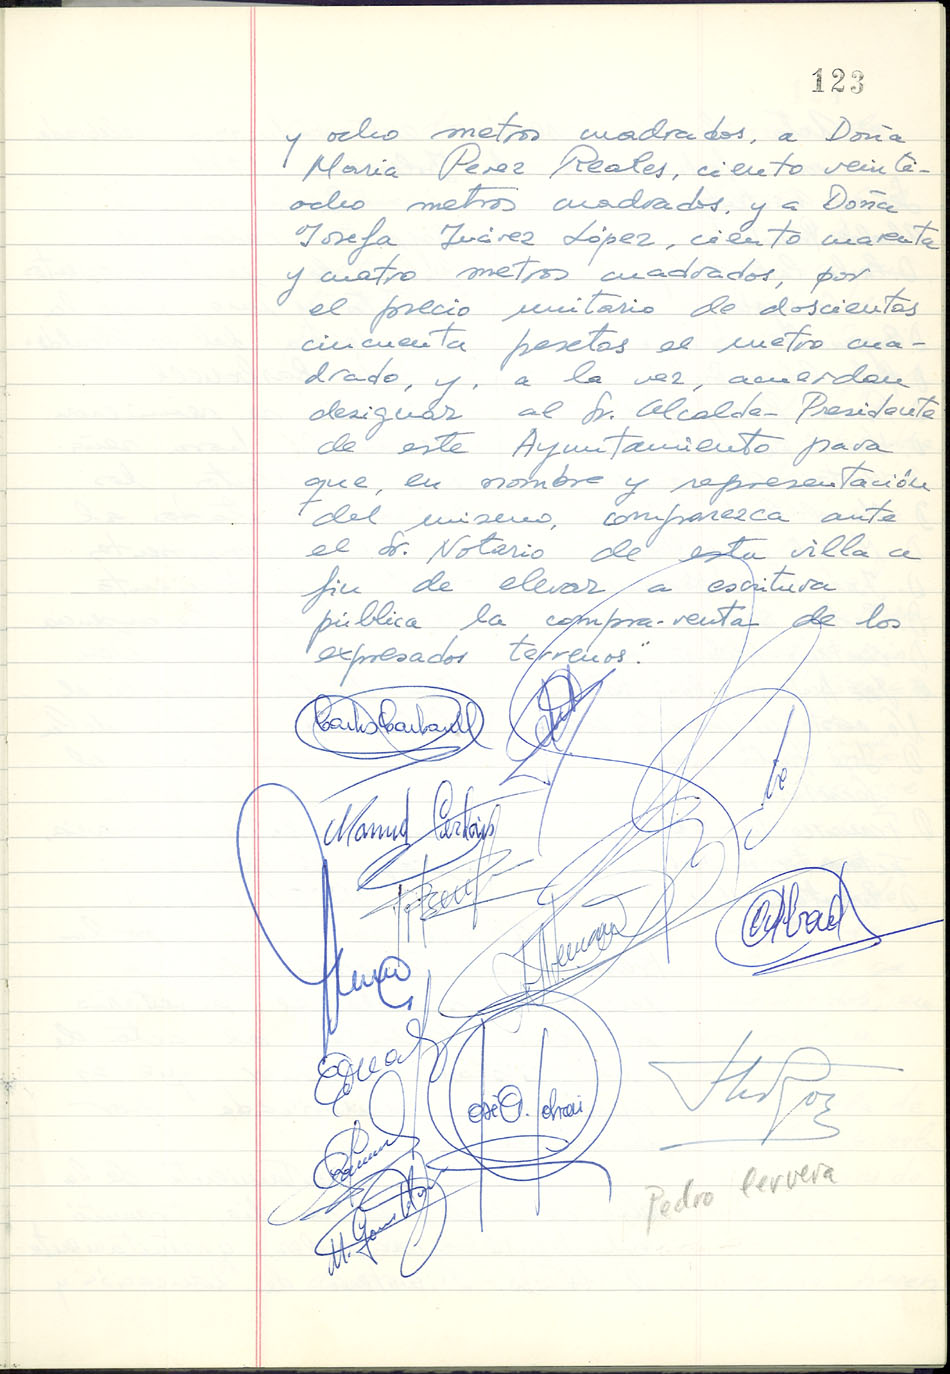 123
y ocho metros cuadrados, a Doña
María Perez Reales, ciento veinti-
ocho metros cuadrados, y a Doña
Josefa Juárez López, ciento cuarenta
y cuatro metros cuadrados, por
el precio unitario de doscientas
cincuenta pesetas el metro cua-
drado, y, a la vez, acuerdan
designar al Sr. Alcalde-Presidente
de este Ayuntamiento para
que, en nombre y representación
del mismo, comparezca ante
el Sr. Notario de esta villa a
fin de elevar a escritura
pública la compra-venta de los
expresados terrenos."
Manuel
Pedro Cervera